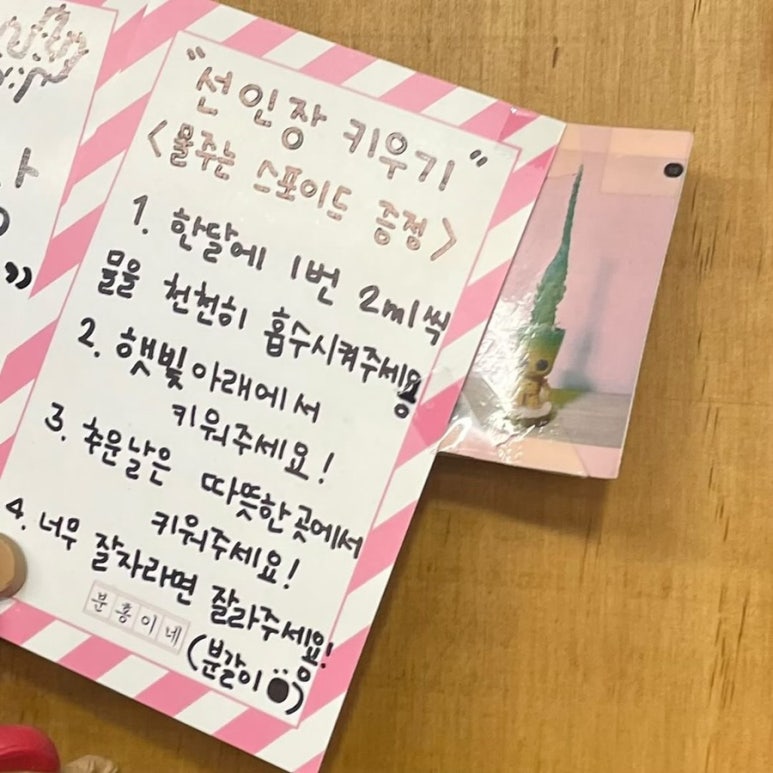 "선인장 키우기"
<물주는 스포이드 증정>
1. 한달에 1번 2ml씩
물을 천천히 흡수시켜주세용
2. 햇빛아래에서
키워주세요!
3. 추운날은 따뜻한곳에서
키워주세요!
4. 너무 잘자라면 잘라주세용!
(분갈이)
분홍이네